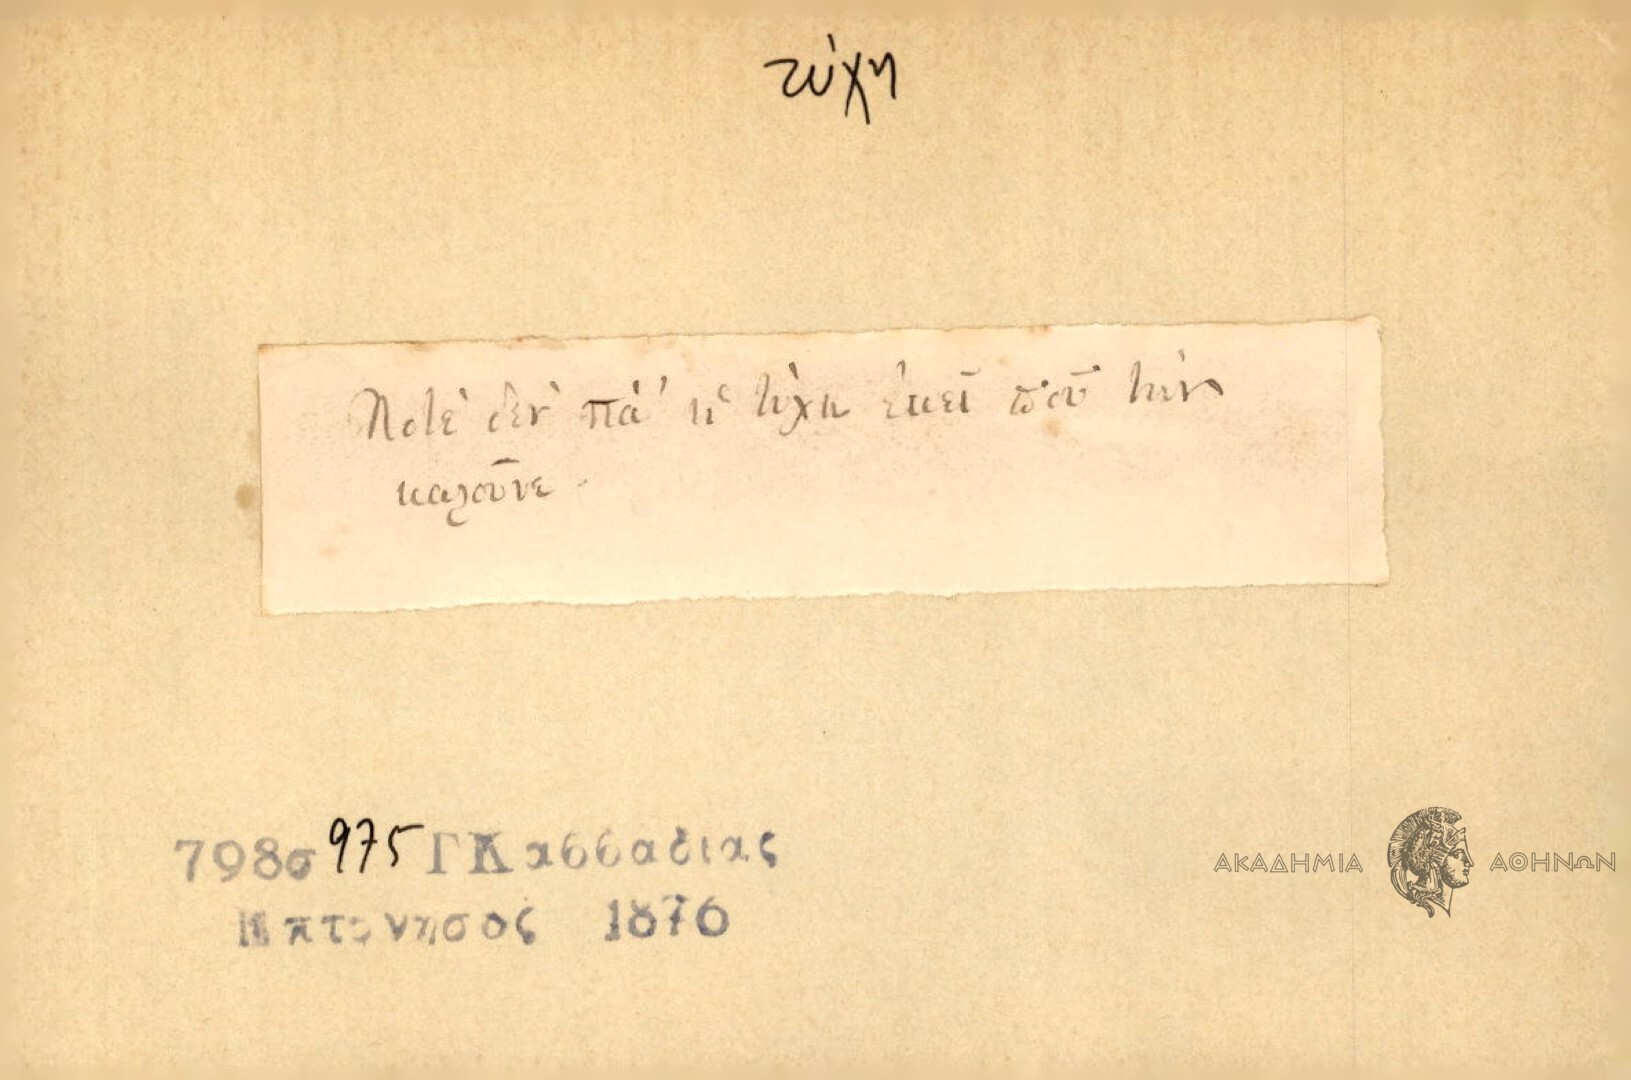 τύχη
Ποτὲ δὲν πά' ἡ τύχη ἐκεῖ ποῦ τὴν
καλοῦνε.
798σ 975 ΓΚασσαδιας
1876
ΑΚΑΔΗΜΙΑ ΑΘΗΝΩΝ